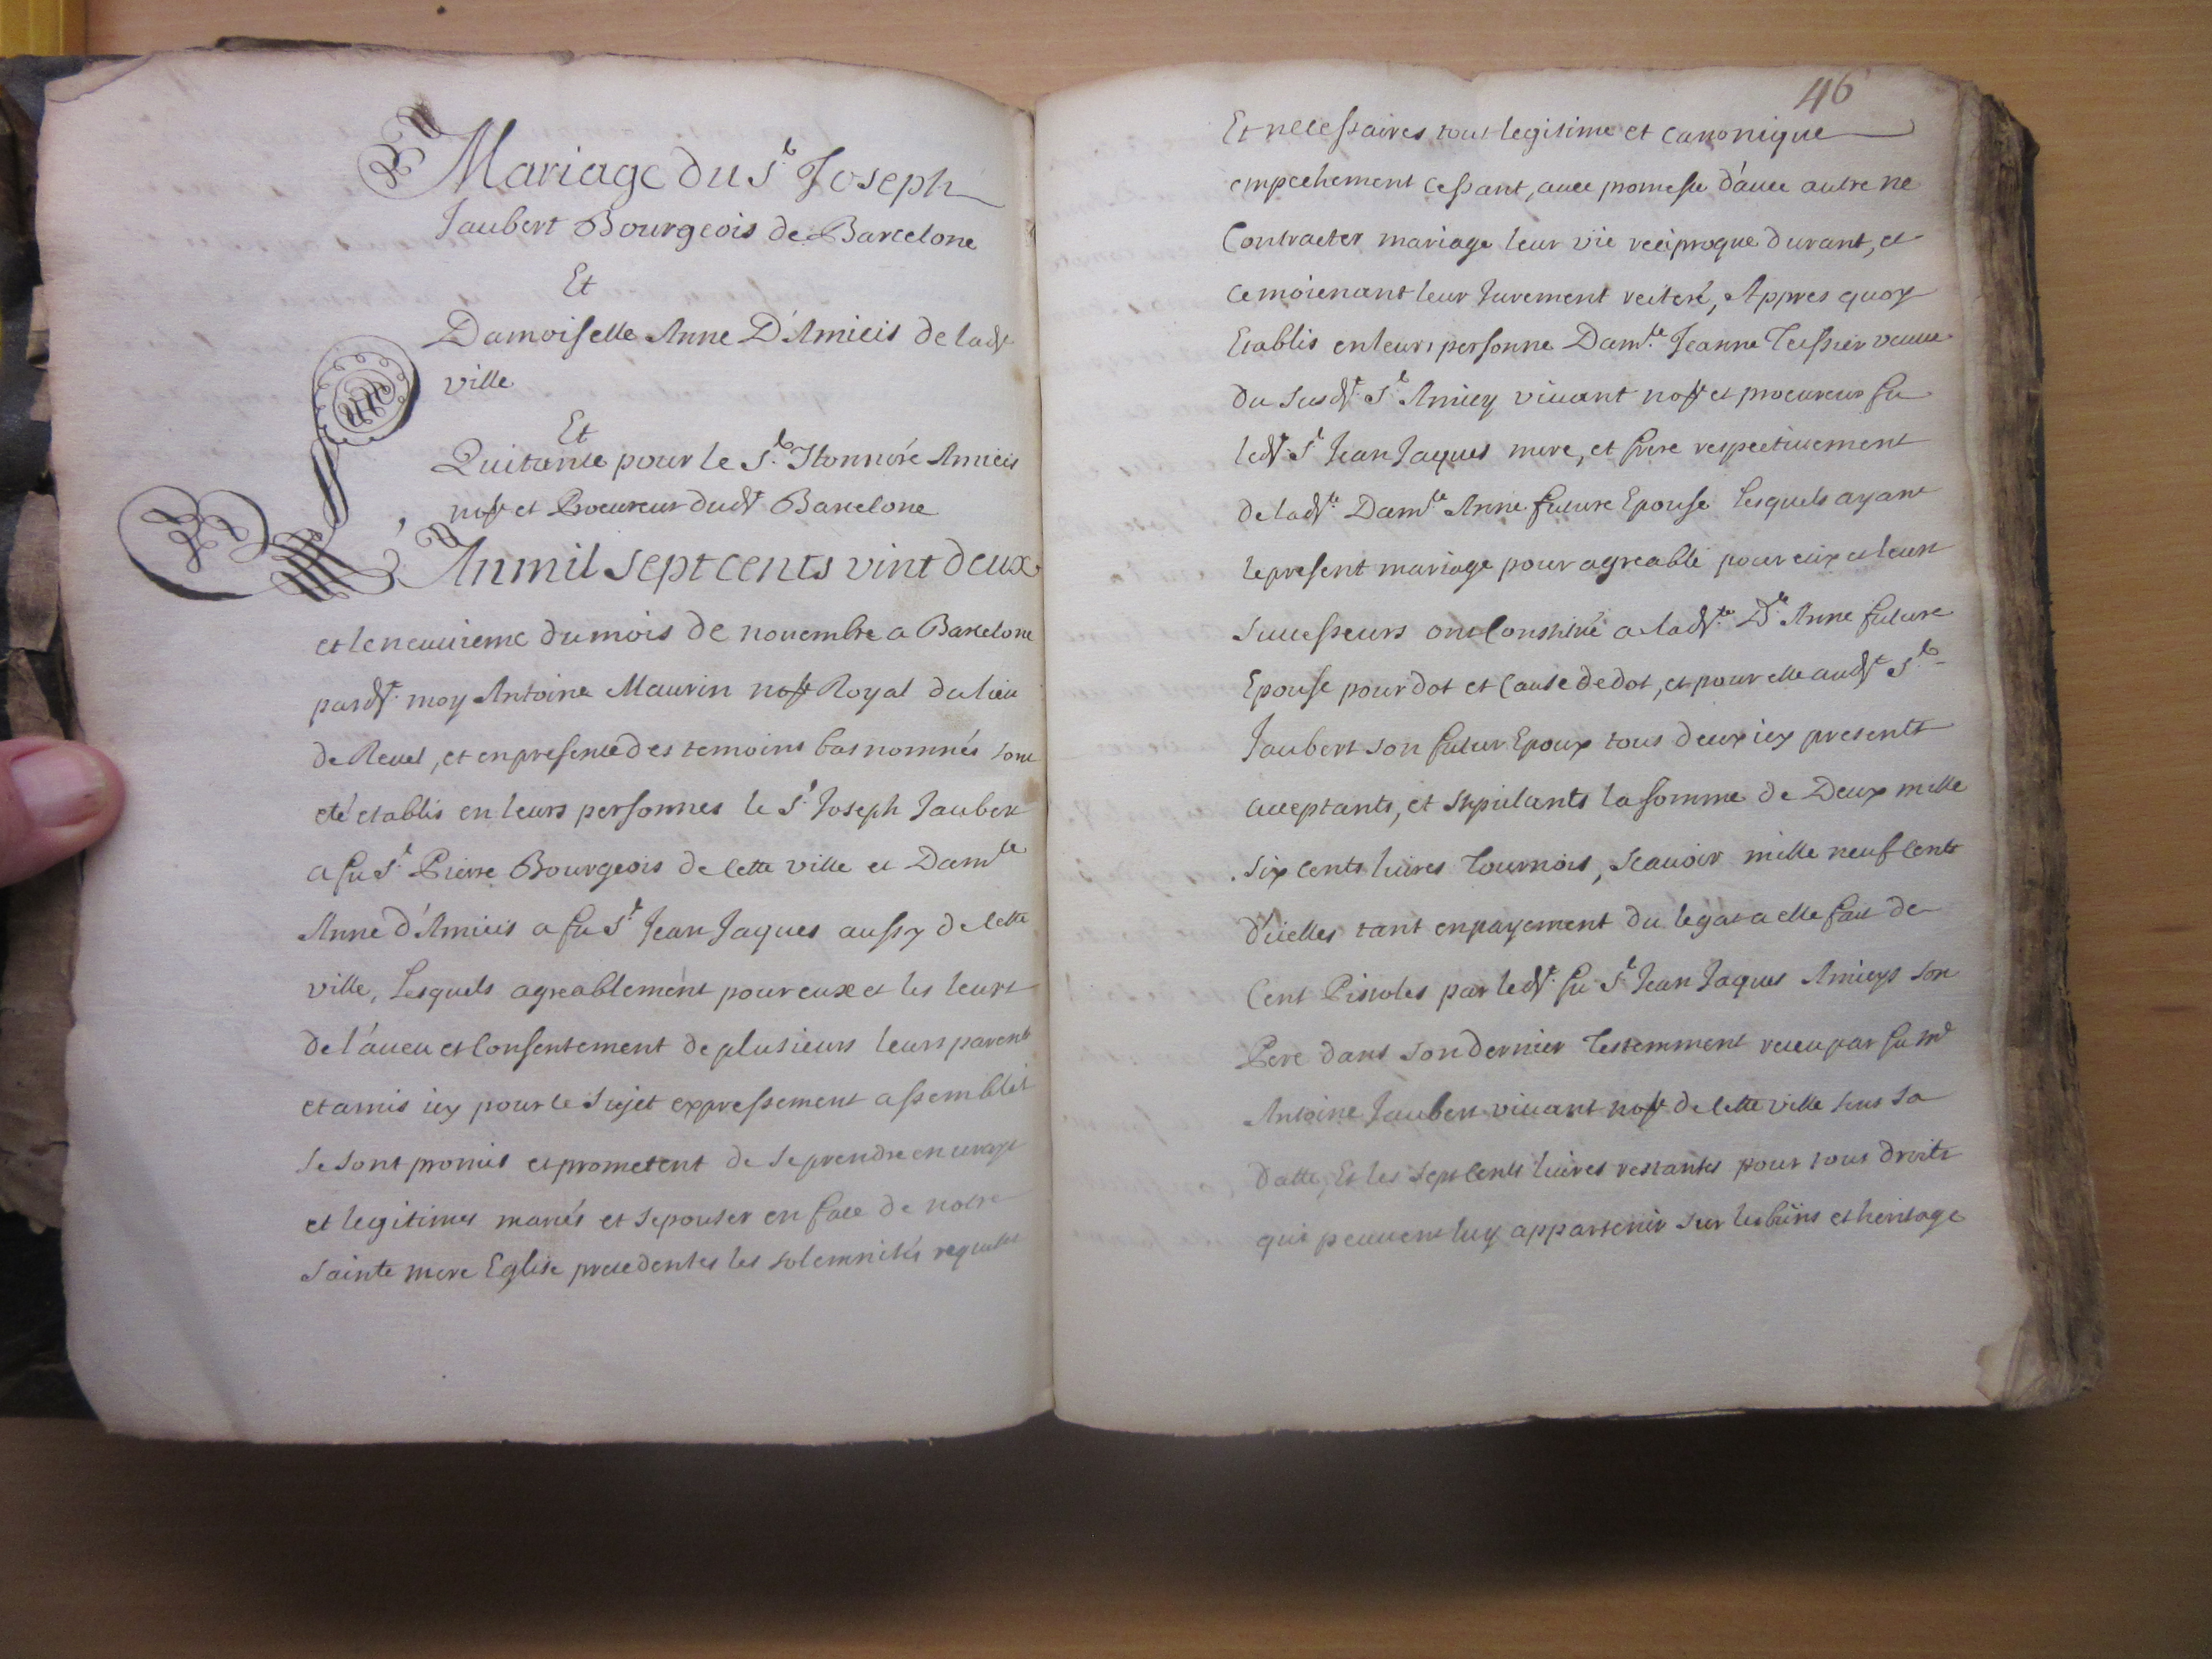 Mariage du Sr. Joseph
Jaubert Bourgeois de Barcelone
Et
Damoiselle Anne D'Amicis de ladt
ville
Et
Quitance pour le Sr. Honnoré Amicis
nore et Procureur dudt Barcelone
An mil sept cents vint deux
et le neuvieme du mois de novembre a Barcelone
pardt. moy Antoine Maurin nore Royal du lieu
de Revel, et en presence des temoins bas nommés sont
eté etablis en leurs personnes le Sr. Joseph Jaubert
a fu Sr. Pierre Bourgeois de cette ville et Damlle
Anne d'Amicis a fu Sr. Jean Jaques aussy de cette
ville, Lesquels agreablement pour eux et les leurs
de l'aveu et consentement de plusieurs leurs parents
et amis icy pour le sujet expressement assemblés
se sont promis et prometent de se prendre en vrays
et legitimes mariés et sepouser en face de notre
sainte mere Eglise precedentes les solemnités requises
46
Et necessaires tout legitime et canonique
empechement cessant, avec promesse d'avec autre ne
Contracter mariage leur vie reciproque durant, et
ce moienant leur Jurement reiteré, Appres quoy
Etablis en leurs personne Damlle. Jeanne Teissier veuve
du susdt. Sr. Amicy vivant nore et procureur fu
ledt. Sr. Jean Jaques mere, et frere respectivement
de ladte. Damlle Anne future Epouse Lesquels ayant
le present mariage pour agreable pour eux et leurs
successeurs ont Constitué a ladte. Dlle Anne future
Epouse pour dot et Cause de dot, et pour elle audt Sr.
Jaubert son futur Epoux tous deux icy presents
acceptants, et stipulants la somme de Deux mille
six cents livres Tournois, Scavoir mille neuf cents
d'icelles tant en payement du legat a elle fait de
Cent Pistoles par ledt. fu Sr. Jean Jaques Amicys son
Pere dans son dernier Testemment receu par fu Me
Antoine Jaubert vivant nore de cette ville sous sa
datte, Et les sept cents livres restantes pour tous droits
qui peuvent luy appartenir sur les biens et heritage